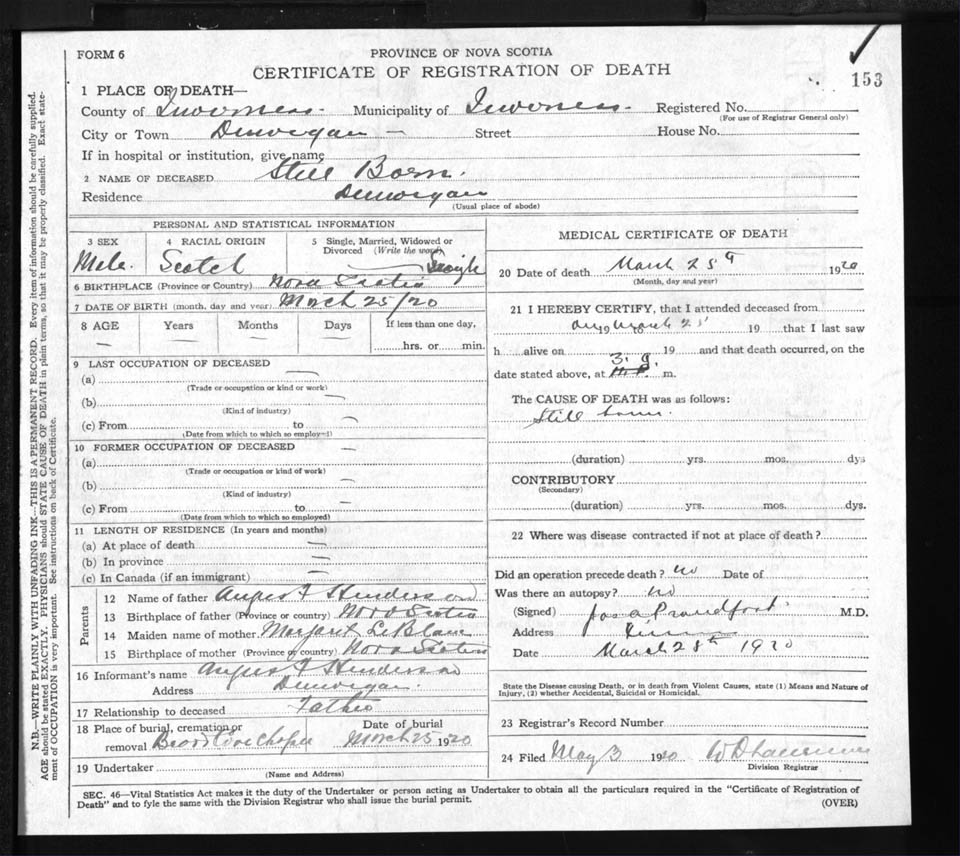 FORM 6
PROVINCE OF NOVA SCOTIA
CERTIFICATE OF REGISTRATION OF DEATH
153
1 PLACE OF DEATH—
County of Inverness. Municipality of Inverness. Registered No.
(For use of Registrar General only)
City or Town Dunvegan — Street House No.
If in hospital or institution, give name
2 NAME OF DECEASED Still Born.
Residence Dunvegan
(Usual place of abode)
PERSONAL AND STATISTICAL INFORMATION
3 SEX 4 RACIAL ORIGIN 5 Single, Married, Widowed or Divorced (Write the word)
Male. Scotch Single
6 BIRTHPLACE (Province or Country) Nova Scotia
7 DATE OF BIRTH (month, day and year) March 25/20
8 AGE Years Months Days If less than one day,
— — — — hrs. or min.
9 LAST OCCUPATION OF DECEASED —
(a)
(Trade or occupation or kind or work)
(b) —
(Kind of industry)
(c) From to —
(Date from which to which so employed)
10 FORMER OCCUPATION OF DECEASED —
(a) —
(Trade or occupation or kind of work)
(b) —
(Kind of industry)
(c) From to —
(Date from which to which so employed)
11 LENGTH OF RESIDENCE (In years and months)
(a) At place of death —
(b) In province —
(c) In Canada (if an immigrant) —
Parents
12 Name of father Angus F Henderson
13 Birthplace of father (Province or country) Nova Scotia
14 Maiden name of mother Margaret LeBlanc
15 Birthplace of mother (Province or country) Nova Scotia
16 Informant's name Angus F Henderson
Address Dunvegan.
17 Relationship to deceased Father
18 Place of burial, cremation or removal Broad Cove Chapel Date of burial March 25 1920
19 Undertaker
(Name and Address)
MEDICAL CERTIFICATE OF DEATH
20 Date of death March 25th 1920
(Month, day and year)
21 I HEREBY CERTIFY, that I attended deceased from
19 to March 25 19 that I last saw
h alive on 19 and that death occurred, on the
date stated above, at 3. m.
The CAUSE OF DEATH was as follows:
Still born.
(duration) yrs. mos. dys
CONTRIBUTORY
(Secondary)
(duration) yrs. mos. dys.
22 Where was disease contracted if not at place of death?
Did an operation precede death? no Date of
Was there an autopsy? no
(Signed) M.D.
Address
Date March 28th 1920
State the Disease causing Death, or in death from Violent Causes, state (1) Means and Nature of Injury, (2) whether Accidental, Suicidal or Homicidal.
23 Registrar's Record Number
24 Filed May 3 1920 W D
Division Registrar
SEC. 46—Vital Statistics Act makes it the duty of the Undertaker or person acting as Undertaker to obtain all the particulars required in the "Certificate of Registration of
Death" and to fyle the same with the Division Registrar who shall issue the burial permit.
(OVER)
N.B.—WRITE PLAINLY WITH UNFADING INK—THIS IS A PERMANENT RECORD. Every item of information should be carefully supplied.
AGE should be stated EXACTLY. PHYSICIANS should STATE CAUSE OF DEATH in plain terms, so that it may be properly classified. Exact state-
ment of OCCUPATION is very important. See instructions on back of Certificate.